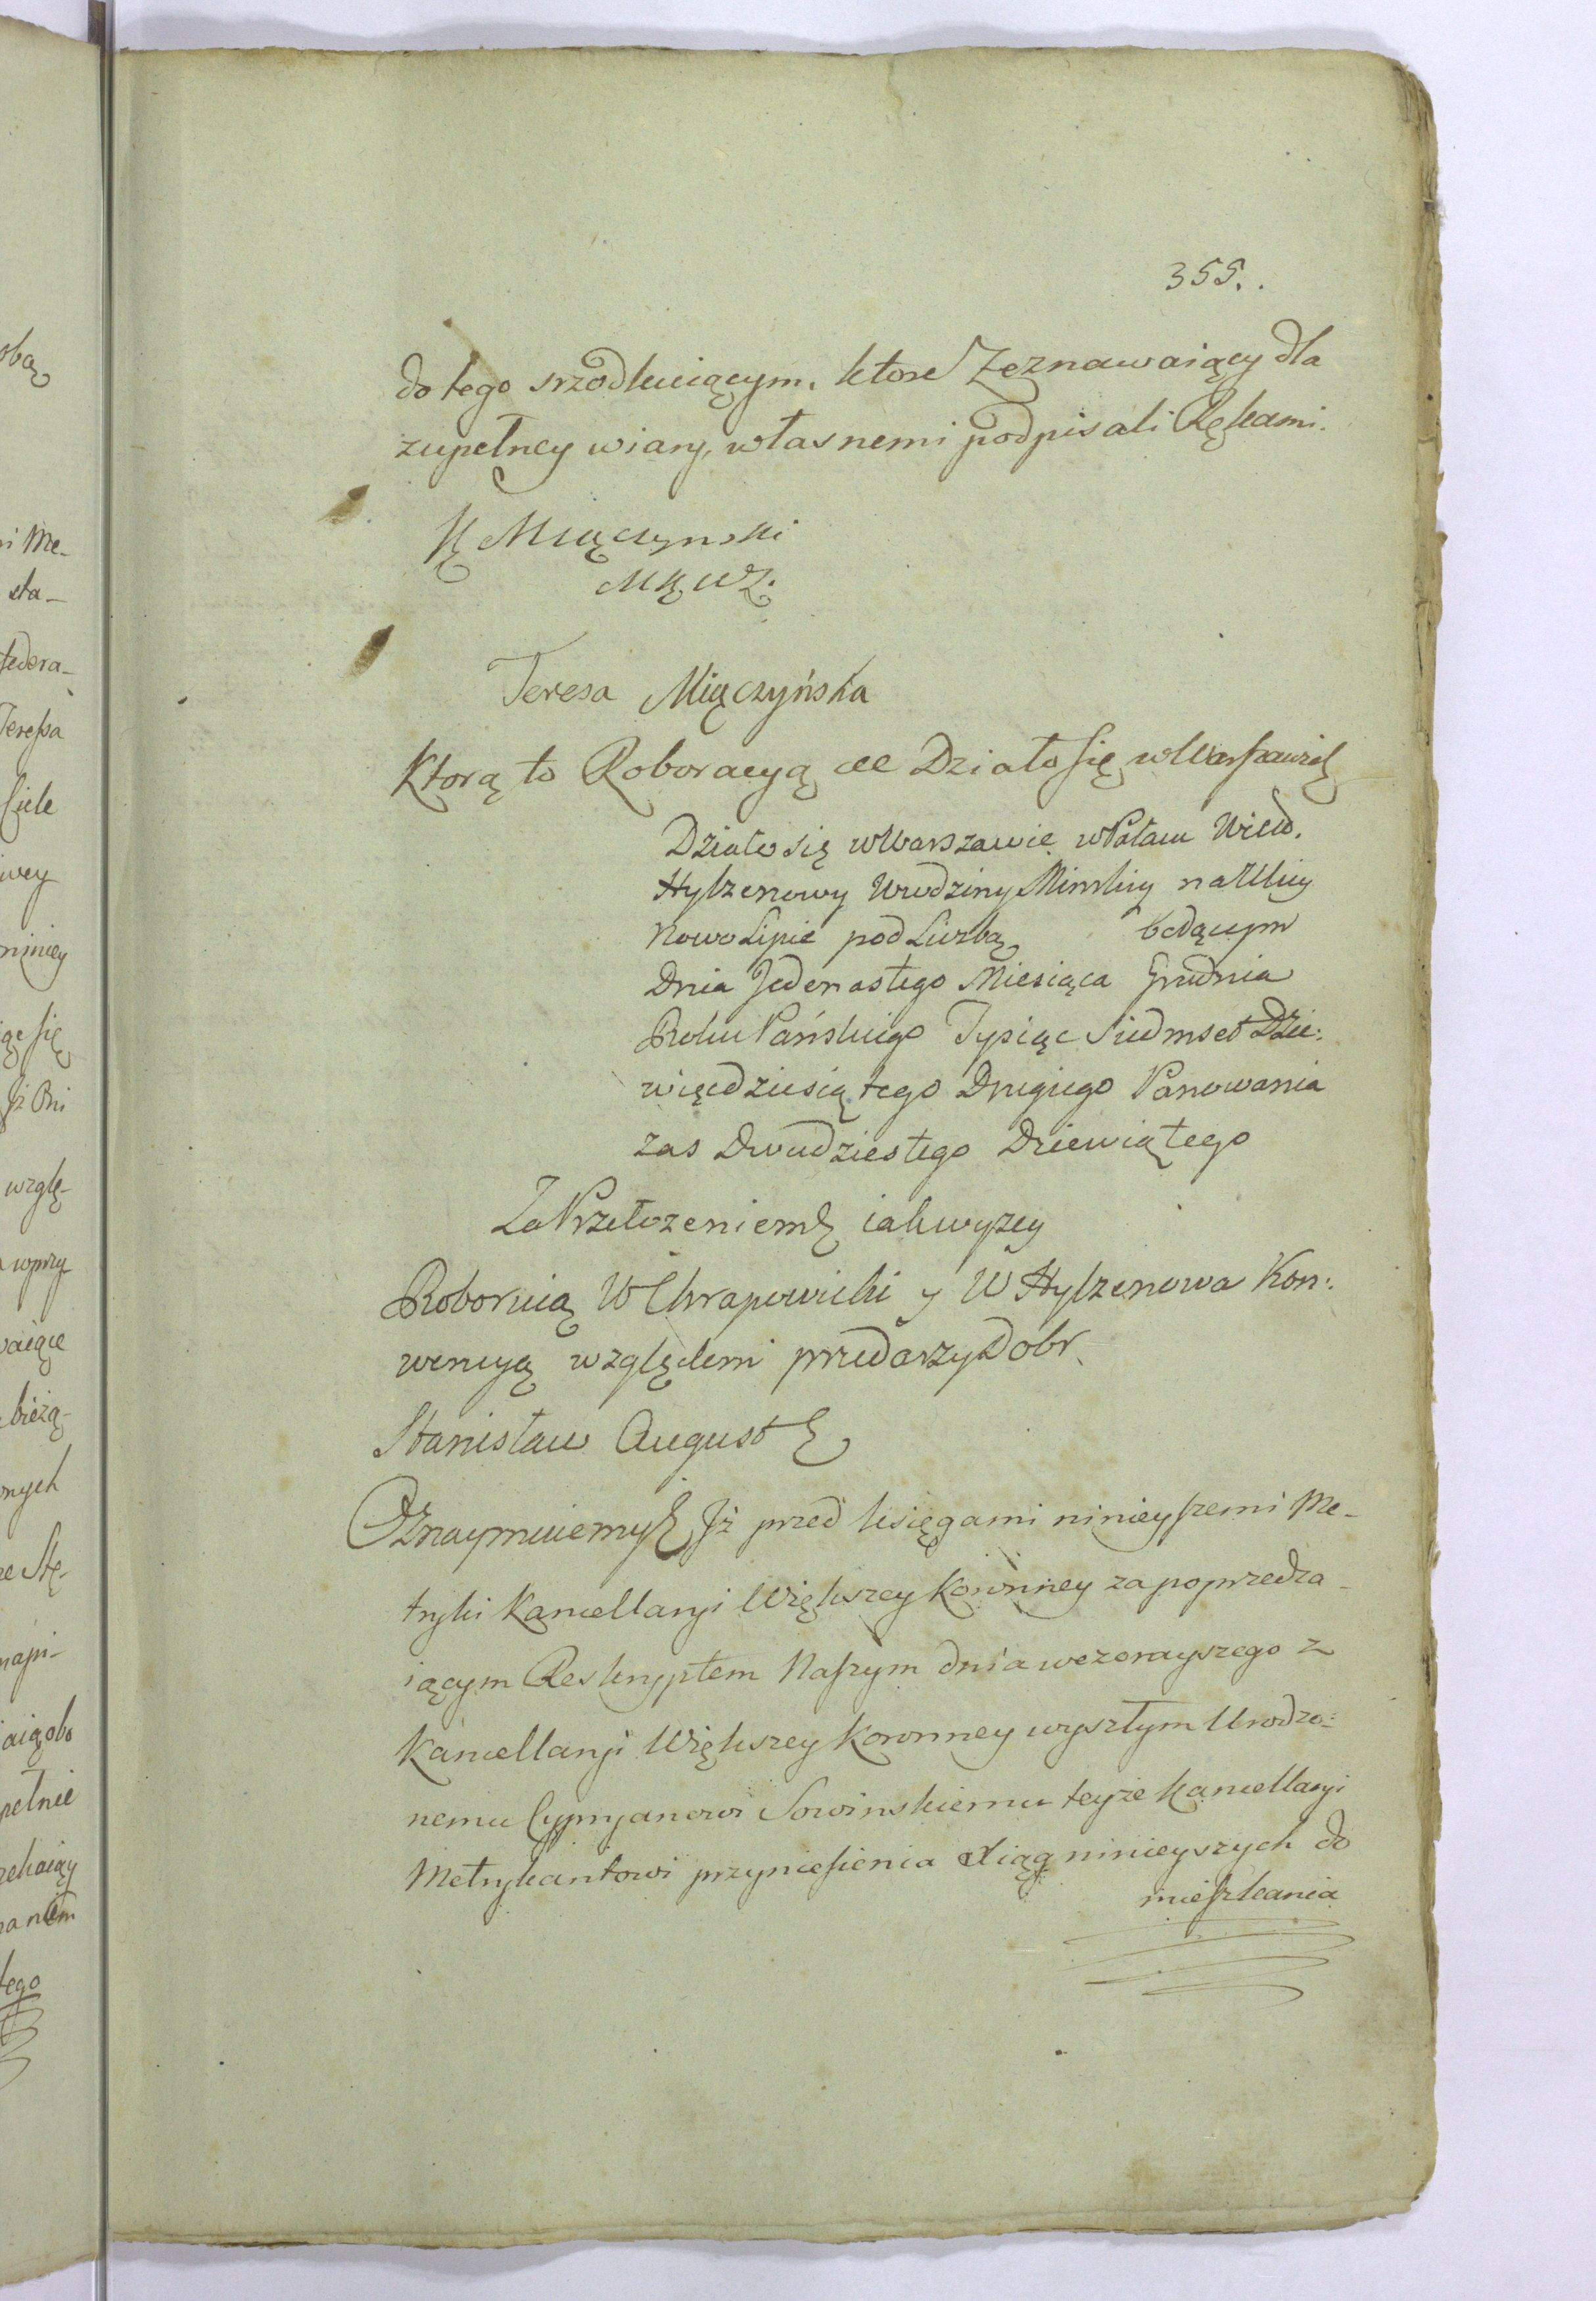 355.
do tego srzodkuiącym, ktore Zeznawaiący dla
zupełney wiary, własnemi podpisali Rękami.
K Miączynski
Teresa Miączyńska
Którą to Roboracyą &c Działo się w Warszawie
Działo się w Warszawie w Pałacu Wielo.
Hylzenowy Wwodziny Minskiy na Ulicy
Nowo Lipie pod Liczbą będącym
Dnia Jedenastego Miesiąca Grudnia
Roku Pańskiego Tysiąc Siedmset Dzie:
więcdziesiątego Drugiego Panowania
zas Dwudziestego Dziewiątego
Za Przełozeniem &c iak wyzey
Roboruią W Chrapowicki y W Hylzenowa Kon:
wencyą względem przedarzy Dobr.
Stanisław August &c
Oznaymuiemy &c Jż przed księgami ninieyszemi Me-
tryki Kancellaryi Większey Koronney za poprzedza-
iącym Reskryptem Naszym dnia wczorayszego z
Kancellaryi Większey Koronney wyszłym Urodzo:
nemu Cypryanowi Sowinskiemu teyże Kancellaryi
Metrykantowi przyniesienia xiąg ninieyszych do
mieszkania